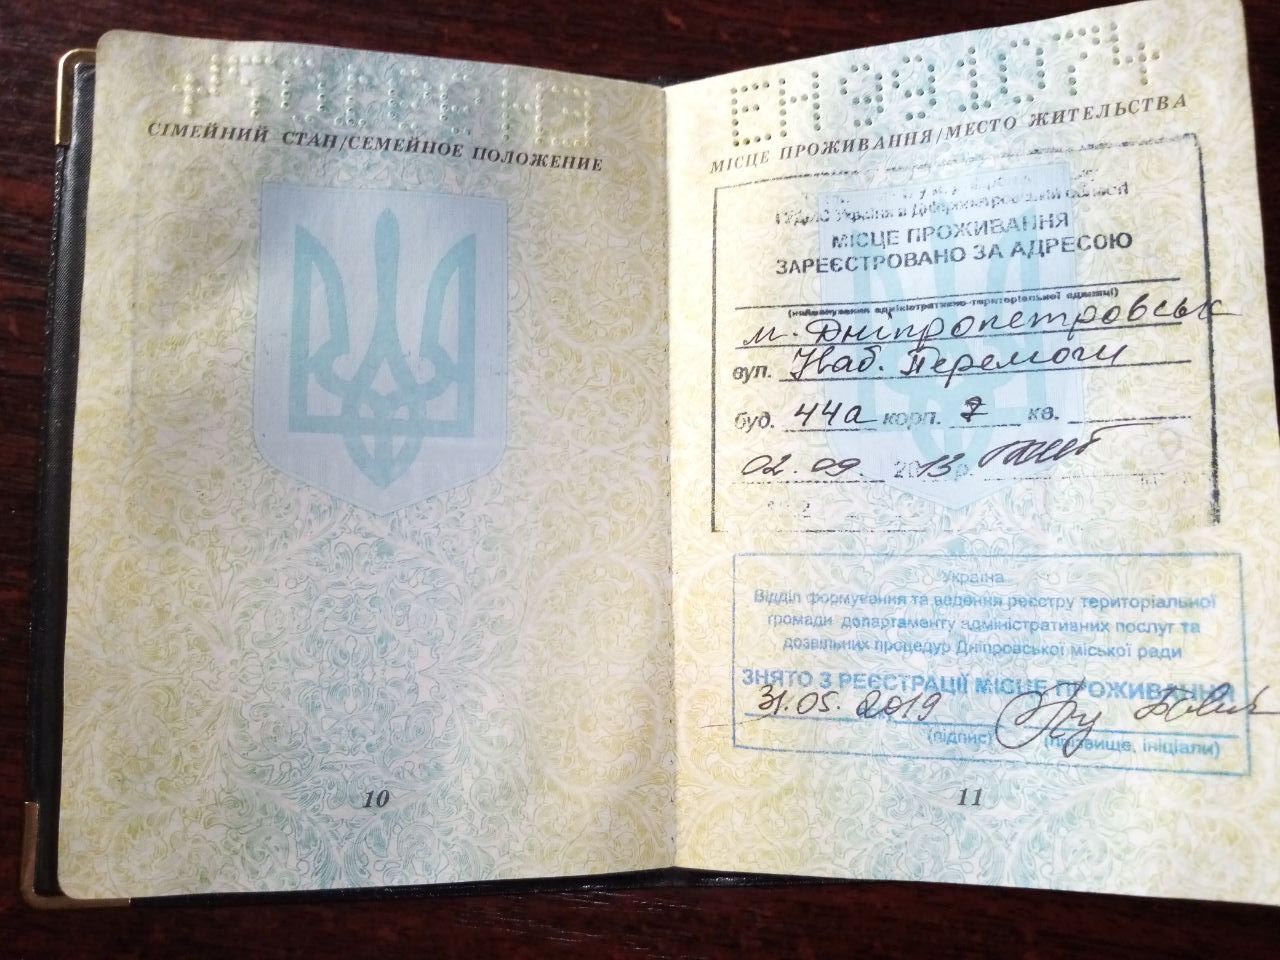 СІМЕЙНИЙ СТАН/СЕМЕЙНОЕ ПОЛОЖЕНИЕ
10
ЕН991074
МІСЦЕ ПРОЖИВАННЯ/МЕСТО ЖИТЕЛЬСТВА
України в Дніпропетровській області
МІСЦЕ ПРОЖИВАННЯ
ЗАРЕЄСТРОВАНО ЗА АДРЕСОЮ
(найменування адміністративно територіальної одиниці)
м. Дніпропетровськ
вул. Наб. Перемоги
буд. 44а корп. 7 кв.
02.09. 2013р.
Україна
Відділ формування та ведення реєстру територіальної
громади департаменту адміністративних послуг та
дозвільних процедур Дніпровської міської ради
ЗНЯТО З РЕЄСТРАЦІЇ МІСЦЕ ПРОЖИВАННЯ
31.05.2019
(підпис) (прізвище, ініціали)
11